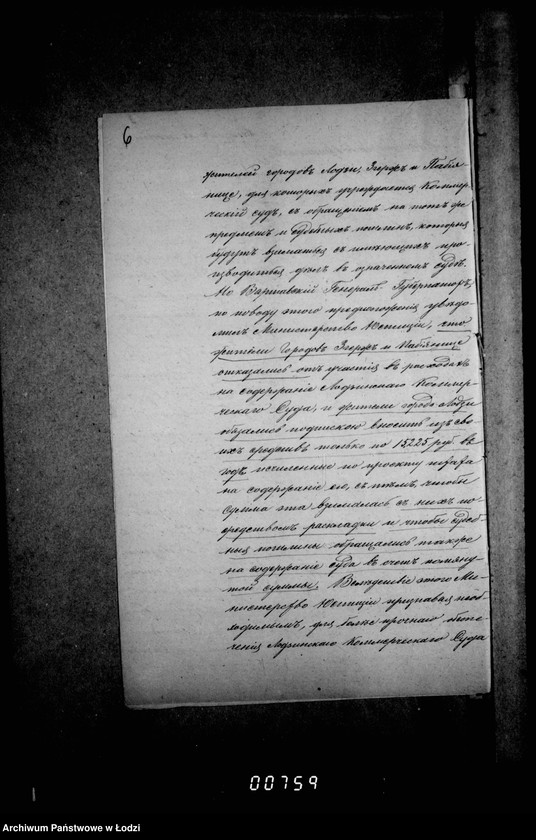 6
жителей городовъ Лодзи, Згержъ и Пабія-
нице, для которыхъ учреждается Коммер-
ческій судъ, съ обращеніемъ на тотъ же
предметъ и судебныхъ пошлинъ, которыя
будутъ взиматься съ имѣющихъ про-
изводиться дѣлъ въ означенномъ судѣ.
Но Варшавскій Генералъ-Губернаторъ,
по поводу этого предположенія увѣдо-
милъ Министерство Юстиціи, что
жители Городовъ Згержъ и Пабянице
отказались отъ участія въ расходахъ
на содержаніе Лодзинскаго Коммер-
ческаго Суда, и жители города Лодзи
обязались подпискою вносить изъ сво-
ихъ средствъ только по 15225 руб. въ
годъ исчисленные по проекту штата
на содержаніе его, съ тѣмъ, чтобы
сумма эта взималась съ нихъ по-
средствомъ раскладки и чтобы судеб-
ныя пошлины обращались также
на содержаніе суда въ счетъ помяну-
той суммы. Вслѣдствіе этого Ми-
нистерство Юстиціи признавая необ-
ходимымъ, для болѣе прочнаго обезпе-
ченія Лодзинскаго Коммерческаго Суда
00759
Archiwum Państwowe w Łodzi